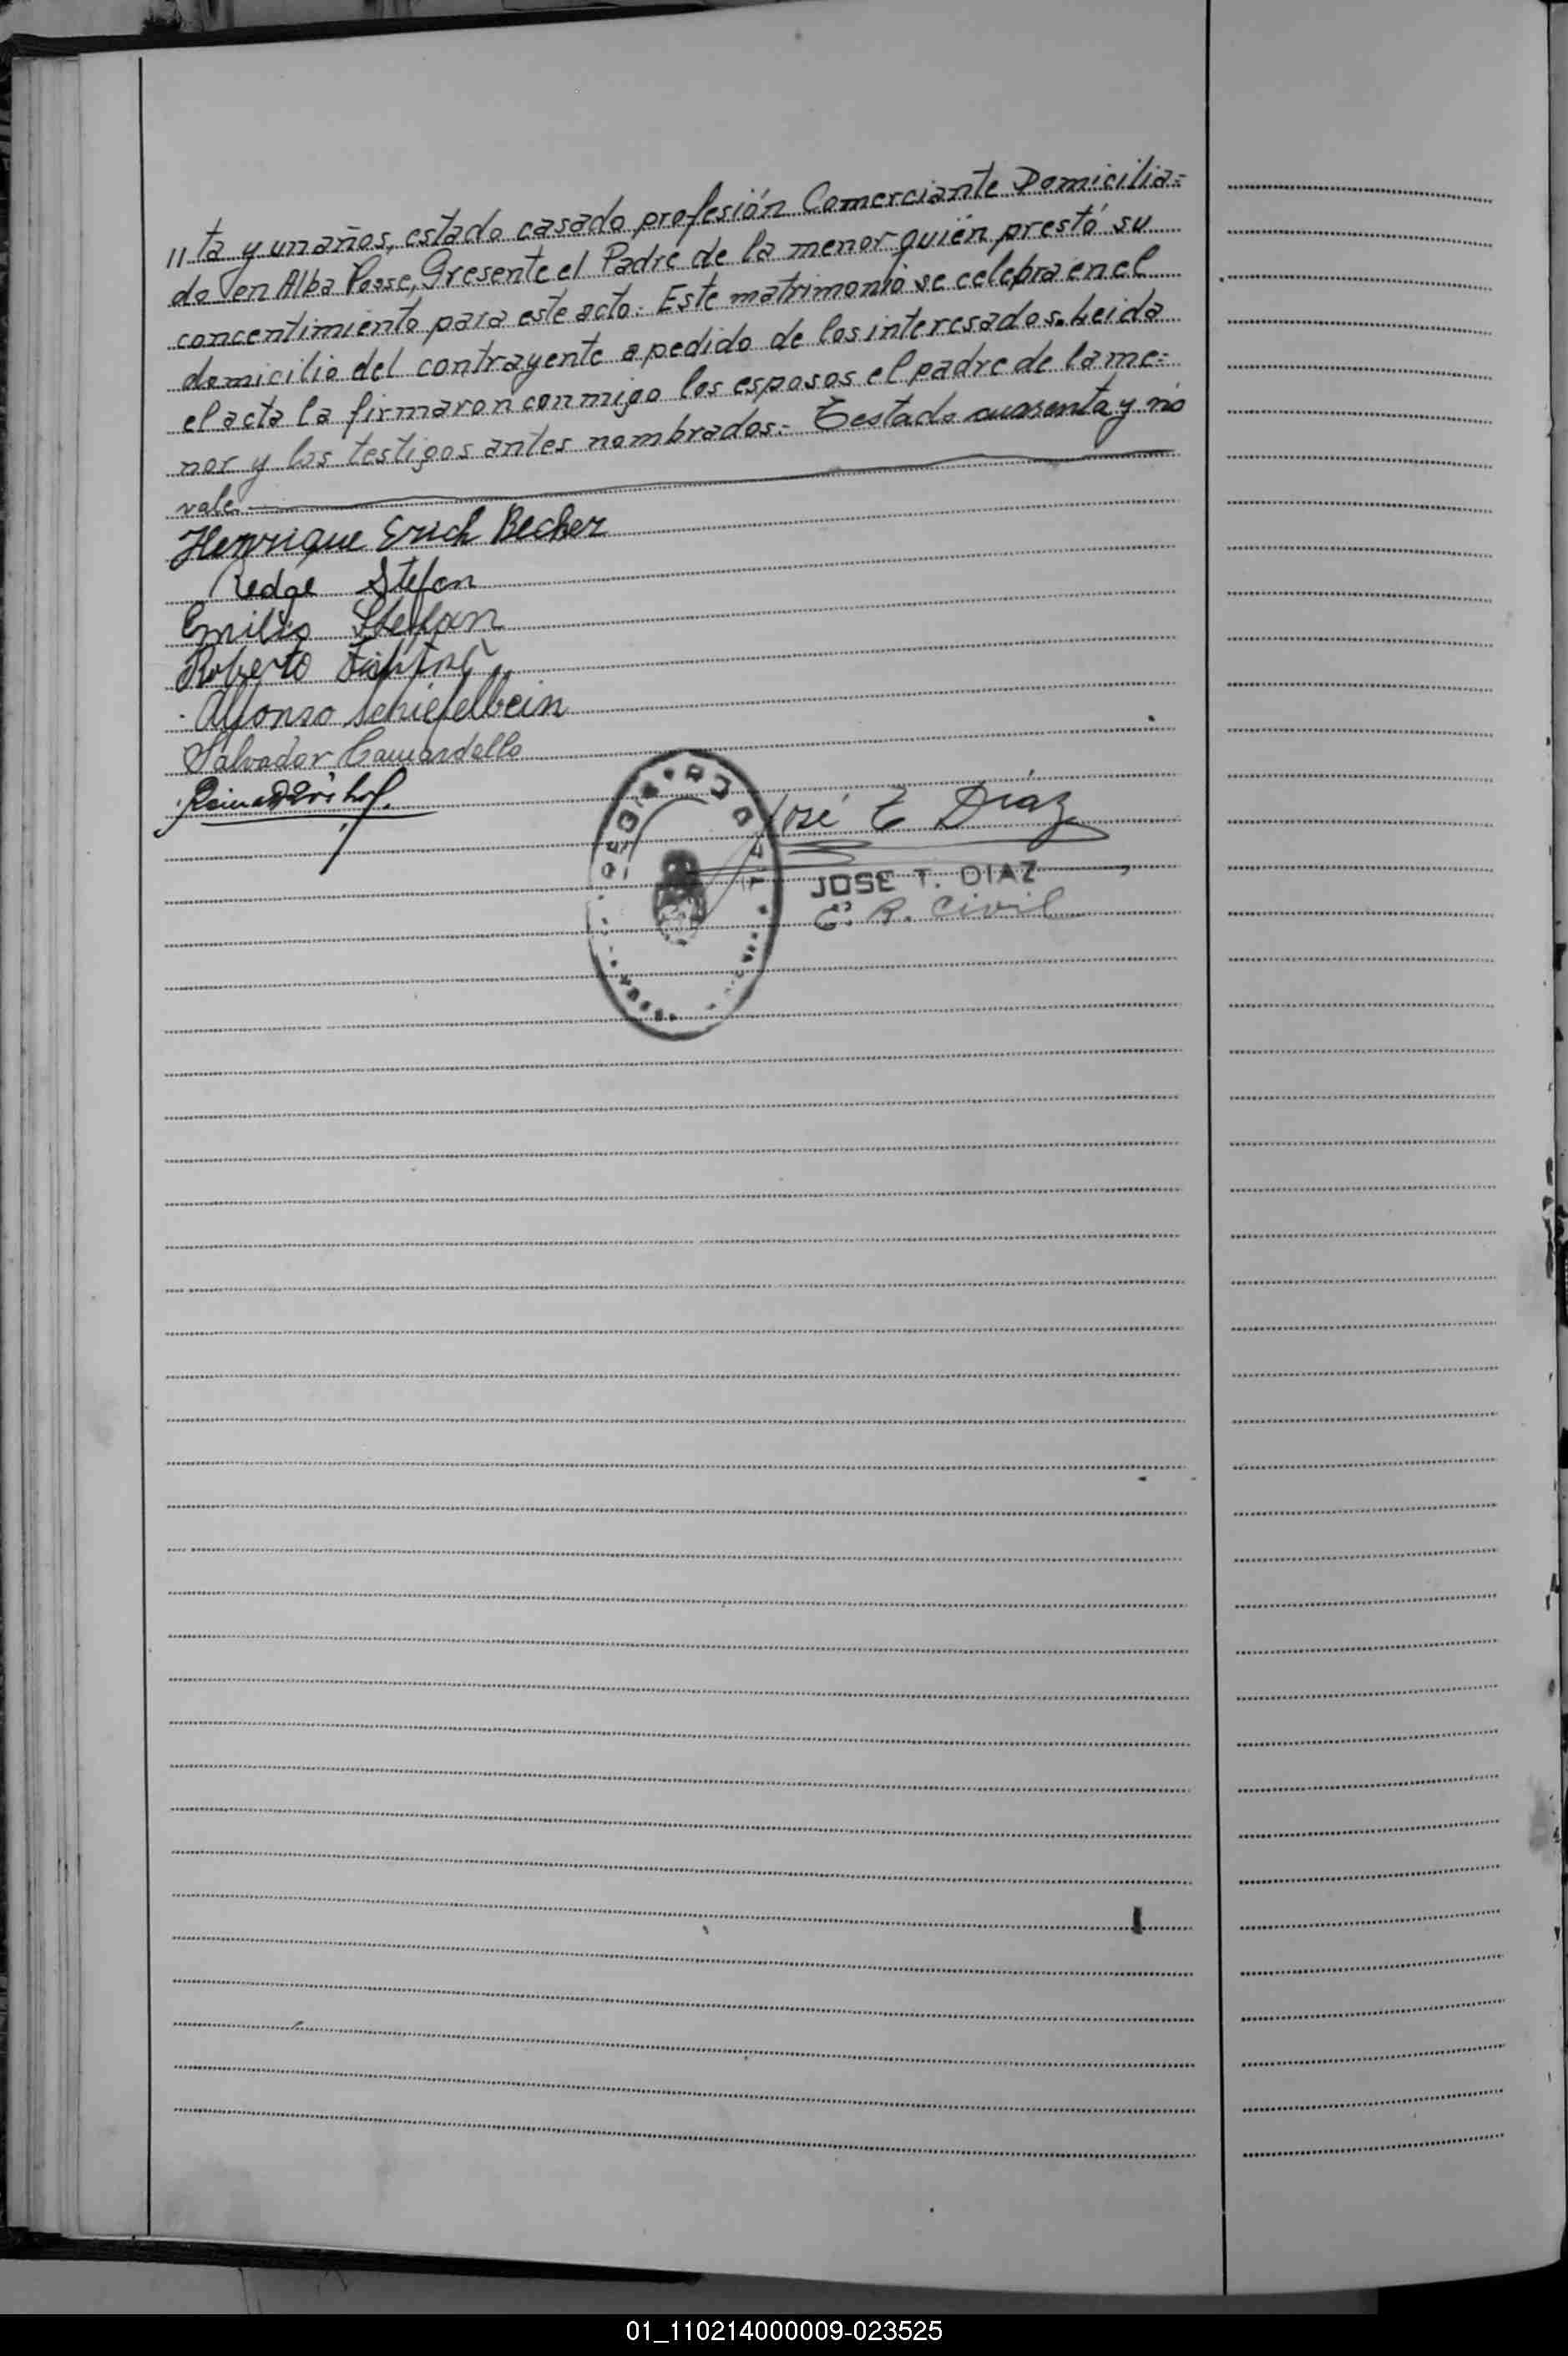 "ta y un años, estado casado profesión Comerciante Domicilia=
do en Alba Posse, Presente el Padre de la menor quién prestó su
concentimiento para este acto. Este matrimonio se celebra en el
domicilio del contrayente a pedido de los interesados. Leida
el acta la firmaron conmigo los esposos el padre de la me=
nor y los testigos antes nombrados.- Testado cuarenta y no
vale.
Henrique Erich Becher
Stefan
Emilio Stefan
Roberto
Alfonso Schiefelbein
Salvador Camardello
José T Díaz
JOSE T. DIAZ
E. R. Civil
01_110214000009-023525